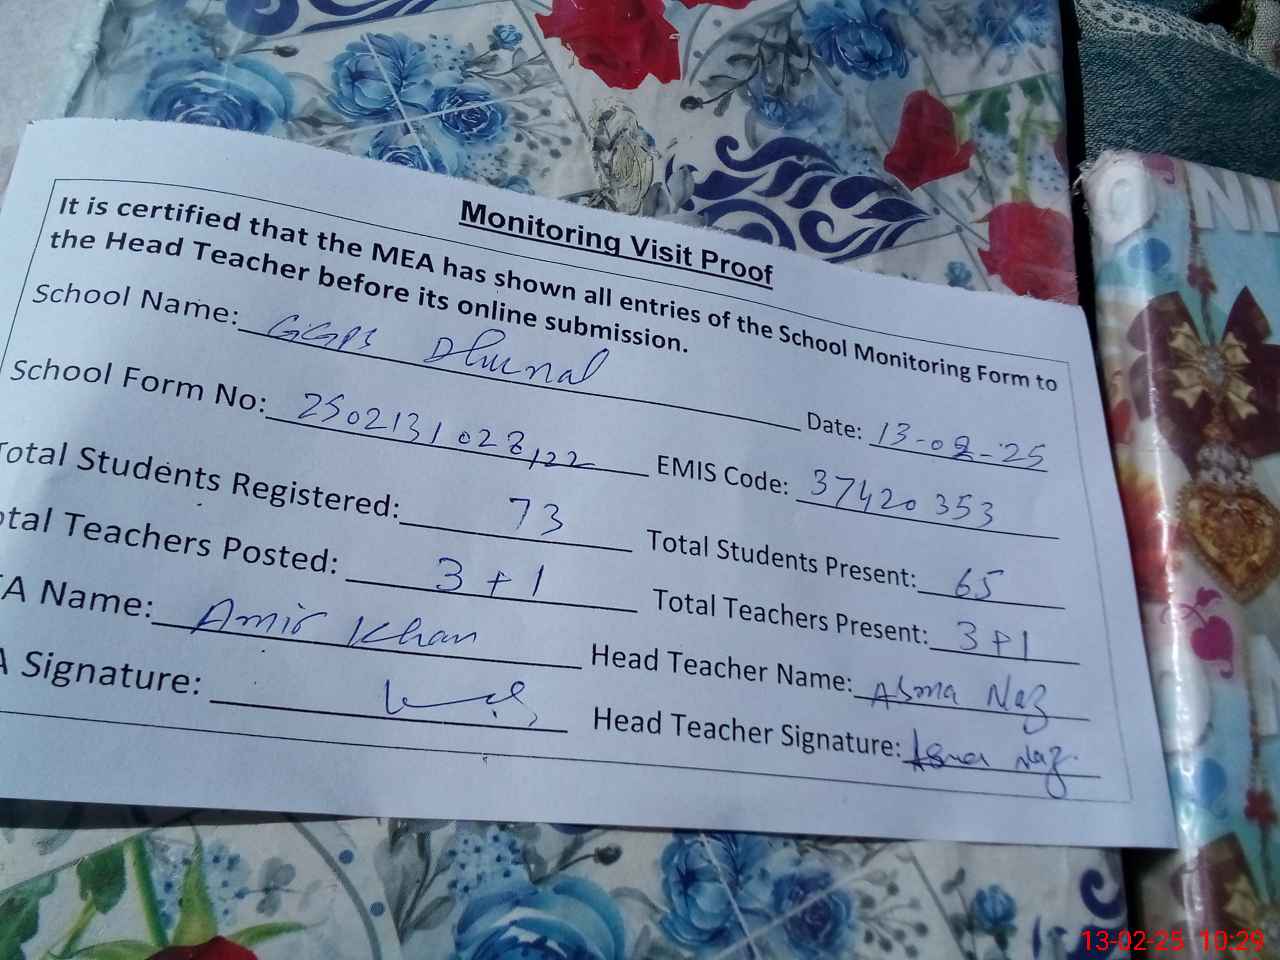 Monitoring Visit Proof
It is certified that the MEA has shown all entries of the School Monitoring Form to
the Head Teacher before its online submission.
School Name: GGPS Dhurnal Date: 13-02-25
School Form No: 250213102822 EMIS Code: 37420353
Total Students Registered: 73 Total Students Present: 65
otal Teachers Posted: 3+1 Total Teachers Present: 3+1
EA Name: Amir Khan Head Teacher Name: Asma Naz
A Signature: Head Teacher Signature: Asma Naz.
13-02-25 10:29